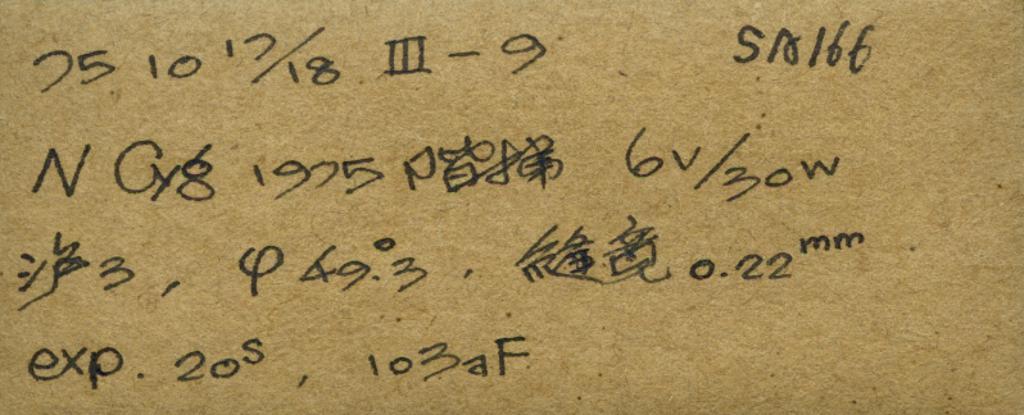 75 10 17/18 III - 9 SA166
N Cyg 1975 階梯 6V/30W
3, φ 49.°3, 縫宽 0.22mm
exp. 20s, 103aF